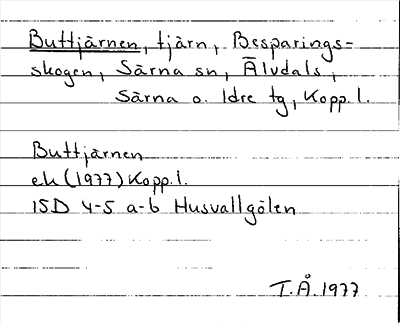 Buttjärnen, tjärn, Besparings=
skogen, Särna sn, Älvdals,
Särna o. Idre tg, Kopp. l.
Buttjärnen
ek (1977) Kopp. l.
15D 4-5 a-b Husvallgölen
T.Å. 1977